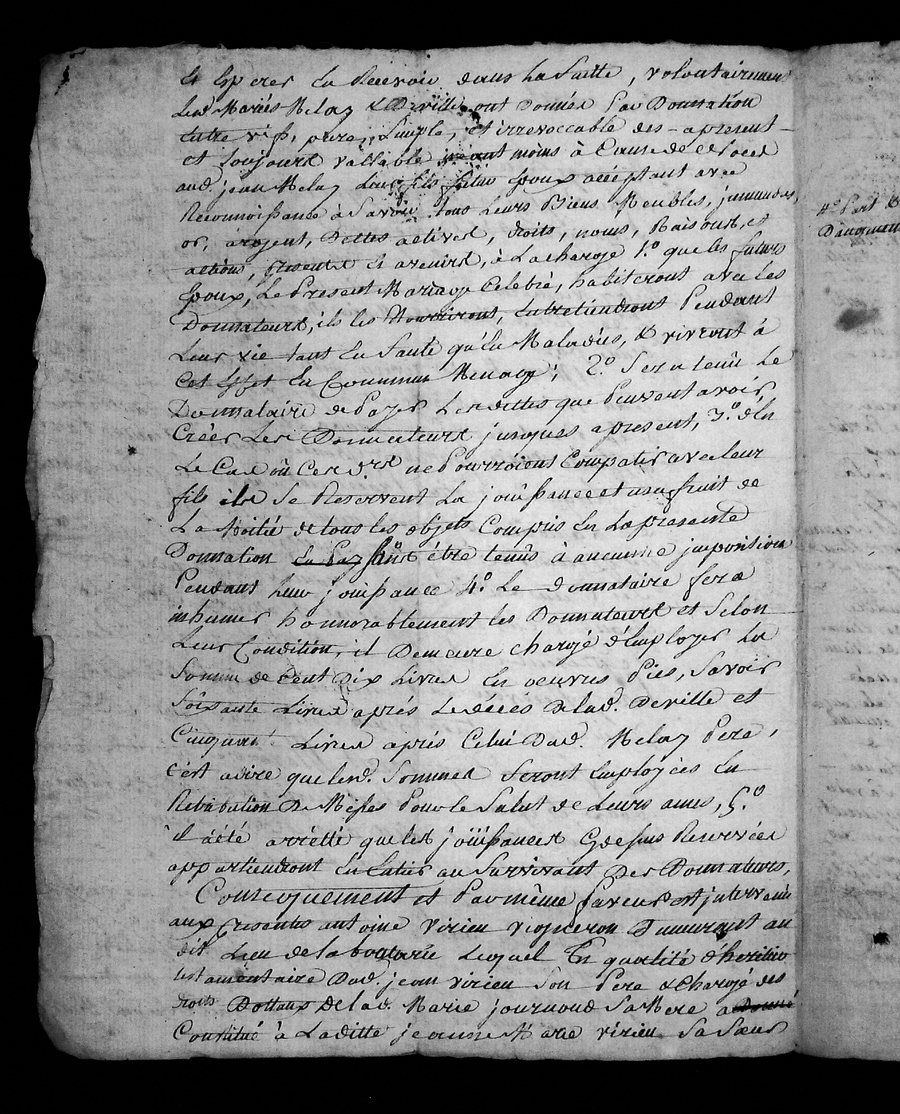 et Esperer En Recevoir dans La Suitte, volontairement
Lesd. Mariés Melay & Deville ont Donnés Par Donnation
Entre vifs, pure, Simple, et irrevoccable des-apresent
et toujours vallable neant moins à Cause de deces
aud. jean Melay Leur fils futur Epoux acceptant avec
Reconnoissance à Savoir tous Leurs Biens Meubles, jmmeubles,
or, argent, Dettes actives, droits, noms, Raisons, et
actions, presents et avenirs, à La charge 1.º que les futurs
Epoux, Le Present Mariage Celebré, habiteront avec les
Donnateurs, ils les Nourriront, Entretiendront Pendant
Leur vie tant En Santé qu'En Maladies, & vivront à
Cet Effet En Commun Menage; 2.º Sera tenû Le
Donnataire de Payer Les dettes que Peuvent avoir
Créés Les Donnateurs jusques apresent, 3.º d'En
Le Cas où Ces d.rs ne Pourroient Compatir avec Leur
fils ils Se Reservent La joüissance et usufruit de
La Moitié de tous les objets Compris En La presente
Donnation Sans étre tenûs à aucunne jmposition
Pendant Leur joüissance 4.º Le Donnataire fera
inhumer honnorablement les Donnateurs et Selon
Leur Condition, il Demeure chargé d'Employer La
Somme de Cent Dix Livres En oeuvres Pies, Savoir
Soixante Livres aprés Le decés De lad. Deville et
Cinquante Livres aprés Celui Dud. Melay Pere,
c'est adire que lesd. Sommes Seront Employées En
Retribution De Messes Pour le Salut de Leurs ames, 5.º
il a été arretté que les joüissances Cydessus Reservées
appartiendront En Entier au Survivant Des Donnateurs,
Consequemment et Par même faveur Est jntervenû
aux Presentes antoine Virieu vigneron Demeurant au
dit Lieu de la bouturie Lequel En qualité d'heritier
testamentaire Dud. jean virieu Son Pere & Chargé des
droits Dottaux De lad. Marie journoud Sa Mere a Donné
Constitué à Laditte jeanne Marie virieu Sa Sœur
4.º Part &
Daugment